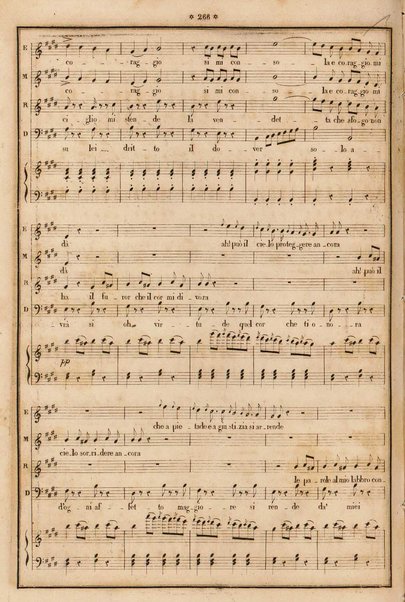 * 266 *
E
co - - rag - gio si mi con - so la e co - rag - gio mi
M
co - - rag - gio si mi con - so la e co - rag - gio mi
R
ci - glio mi sten - de la ven - det - ta che sfo - gò non
D
su lei drit - to il do - ver so - lo a -
E
dà ah! può il cie - lo proteg - gere an - cora
M
dà ah! può il
R
ha il fu - ror che il cor mi di - vora
D
vrà sì oh vir - tù de quel cor che ti o - no - ra
pp
E
che a pie - tade e a giu - stizia si ar - rende
M
cie - lo sor - ri - dere an - cora
R
le pa - role al mio labbro con
D
d'o - gni af - fet - to mag - gio - re si ren - de da' miei